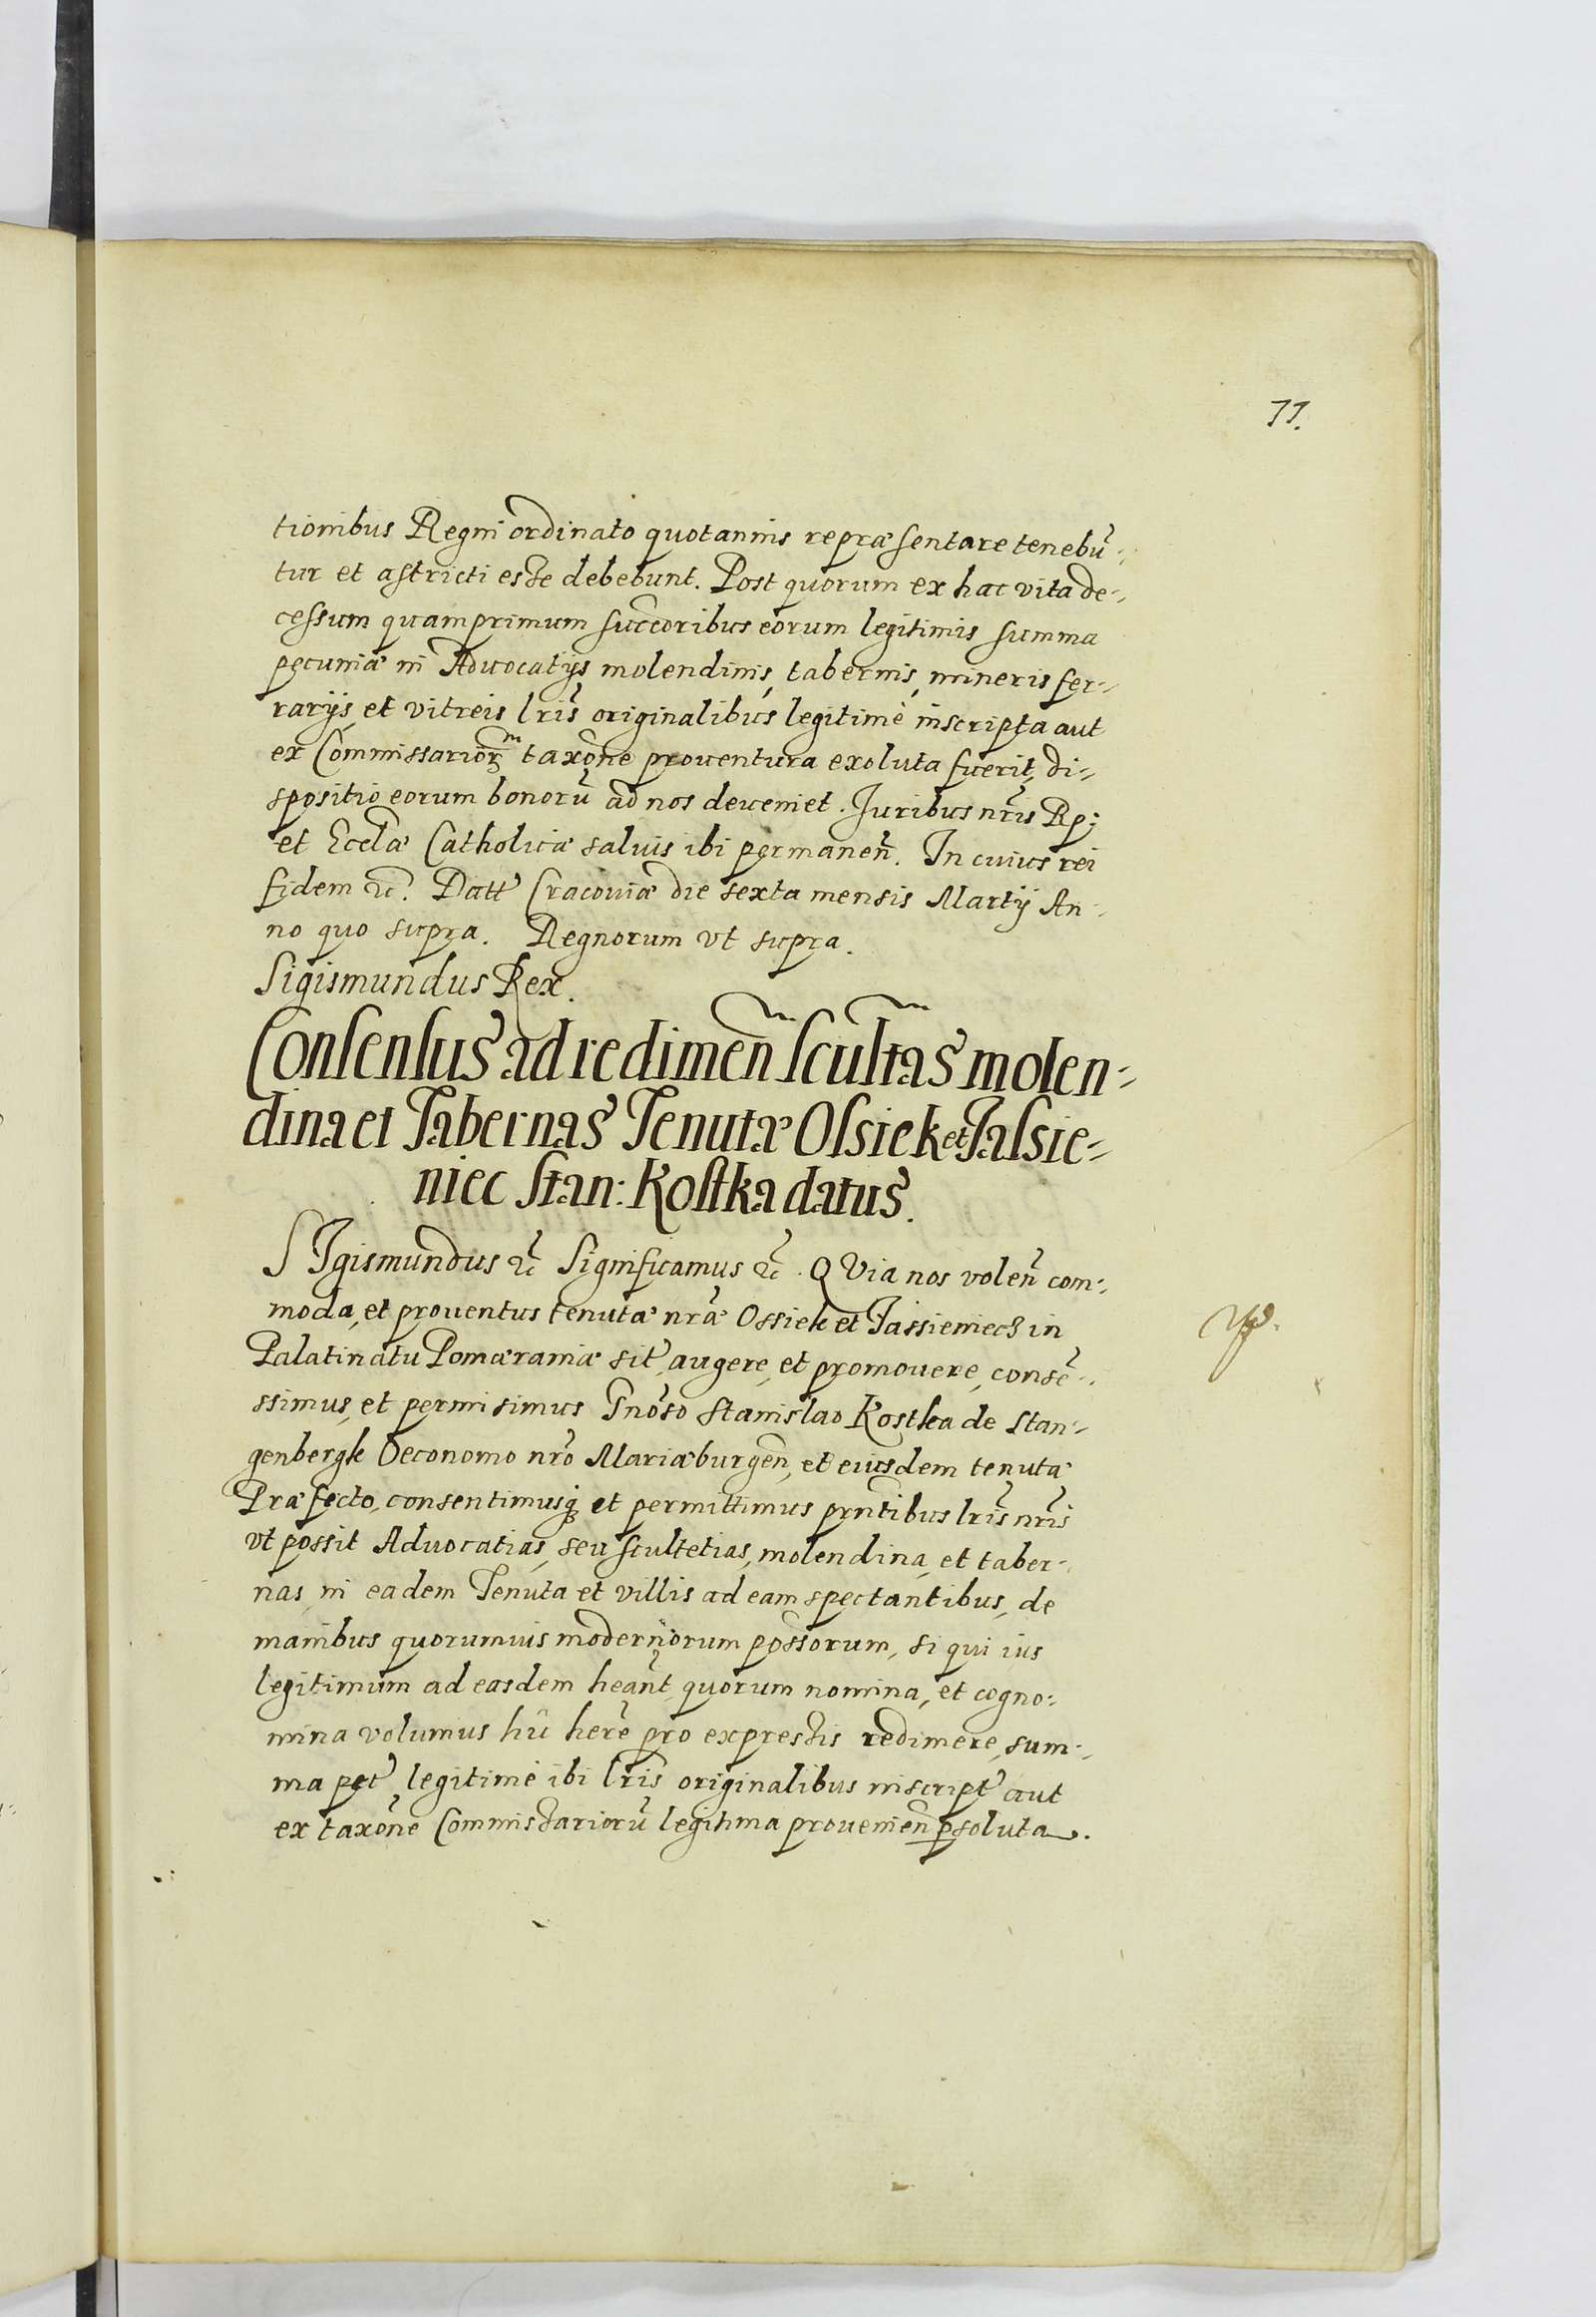 77.
tionibus Regni ordinato quotannis repræsentare tenebũ-
tur et astricti esse debebunt. Post quorum ex hac vita de-
cessum quamprimum succoribus eorum legitimis summa
pecuniæ in Advocatijs molendinis, tabernis, mineris fer-
rarijs, et vitreis lris̃ originalibus legitimè inscripta aut
ex Commissarior̃ taxõne proventura exoluta fuerit, di-
spositio eorum bonorũ ad nos deveniet. Juribus nr̃is Rp:
et Eccl̃æ Catholicæ salvis ibi permaneñ. In cuius rei
fidem &c̃. Datt Cracoviæ die sexta mensis Martij An-
no quo supra. Regnorum vt supra.
Sigismundus Rex.
Consensus ad redimeñ scultas̃ molen-
dina et Tabernas Tenutæ Ossiek et Jassie-
niec Stan: Kostka datus.
SIgismundus &c̃ Significamus &c̃. QVia nos voleñ com-
moda, et proventus tenutæ nr̃æ Ossiek et Jassieniecz in
Palatinatu Pomæraniæ sit̃, augere, et promovere, consẽ-
ssimus, et permisimus Gnõso Stanislao Kostka de Stan-
genbergk Oeconomo nr̃o Mariæburgeñ, et eiusdem tenutæ
Præfecto, consentimusq3 et permittimus pñtibus lris̃ nr̃is
vt possit Advocatias, seu scultetias, molendina, et taber-
nas, in eadem Tenuta et villis ad eam spectantibus, de
manibus quorumvis modernorum possorum, si qui ius
legitimum ad easdem heãnt, quorum nomina, et cogno-
mina volumus hic̃ herẽ pro expressis redimere, sum-
ma pet̃, legitimè ibi lris̃ originalibus inscript̃ aut
ex taxõne Commissariorũ legitima provenieñ psoluta.